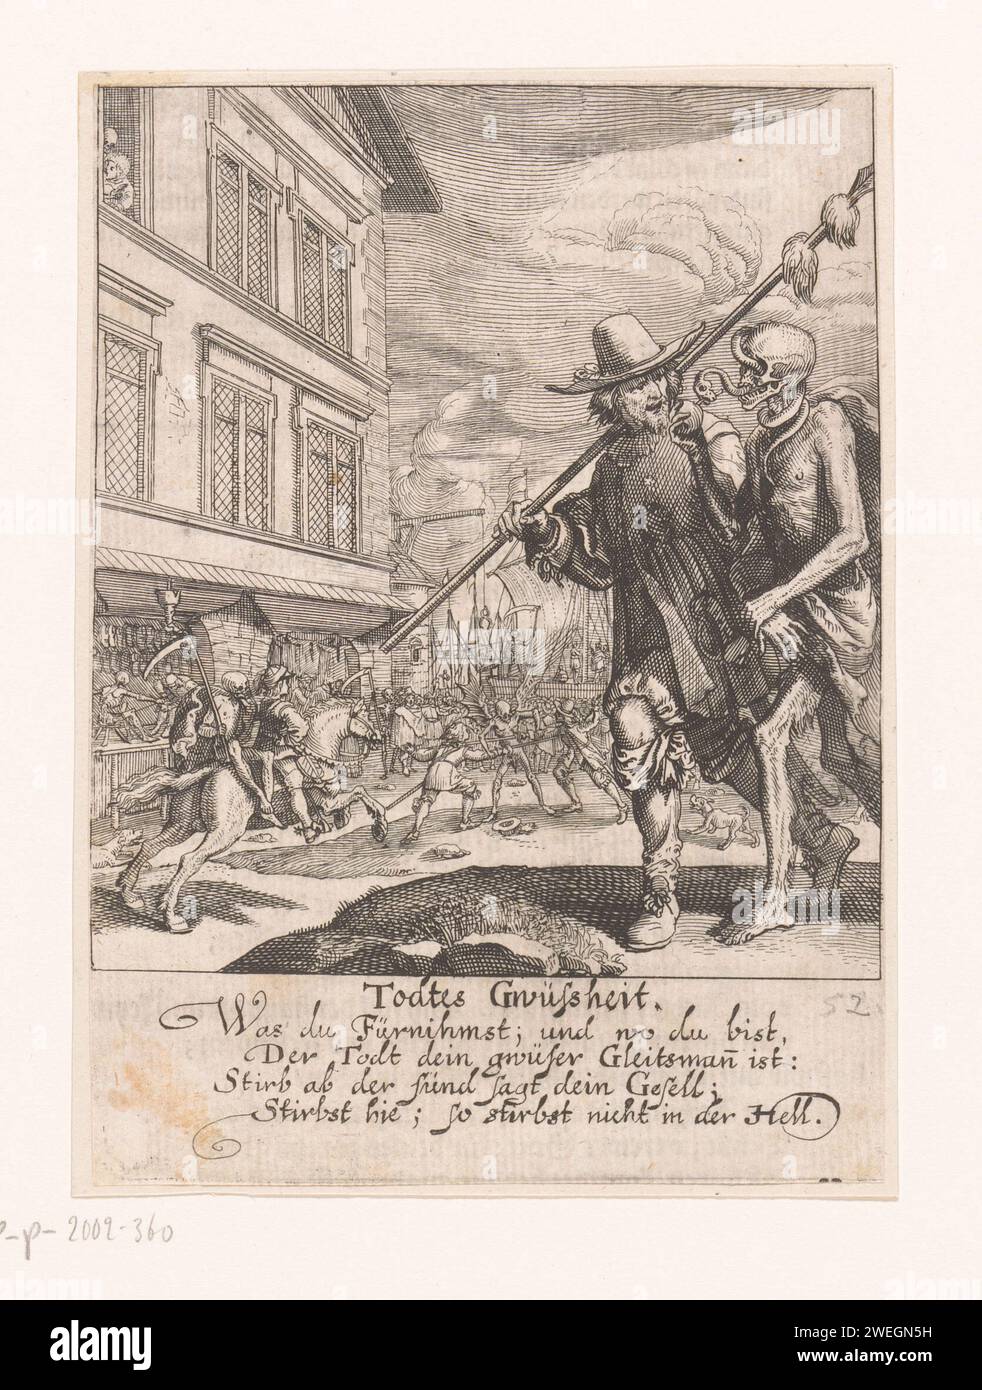 Todtes Gwüſsheit.
52.
Was du Fürnihmst; und wo du bist,
Der Todt dein gwüſer Gleitsmañ ist:
Stirb ab der ſünd ſagt dein Geſell;
Stirbst hie; ſo stirbst nicht in der Hell.
P-P-2002-360
alamy
Image ID: 2WEGN5H
www.alamy.com